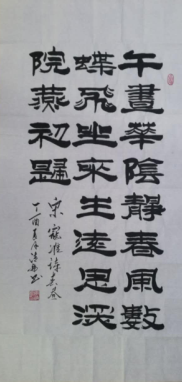 午晝華陰靜春風數
蝶飛坐來生遠思深
院燕初歸
宋寇準詩
丁酉